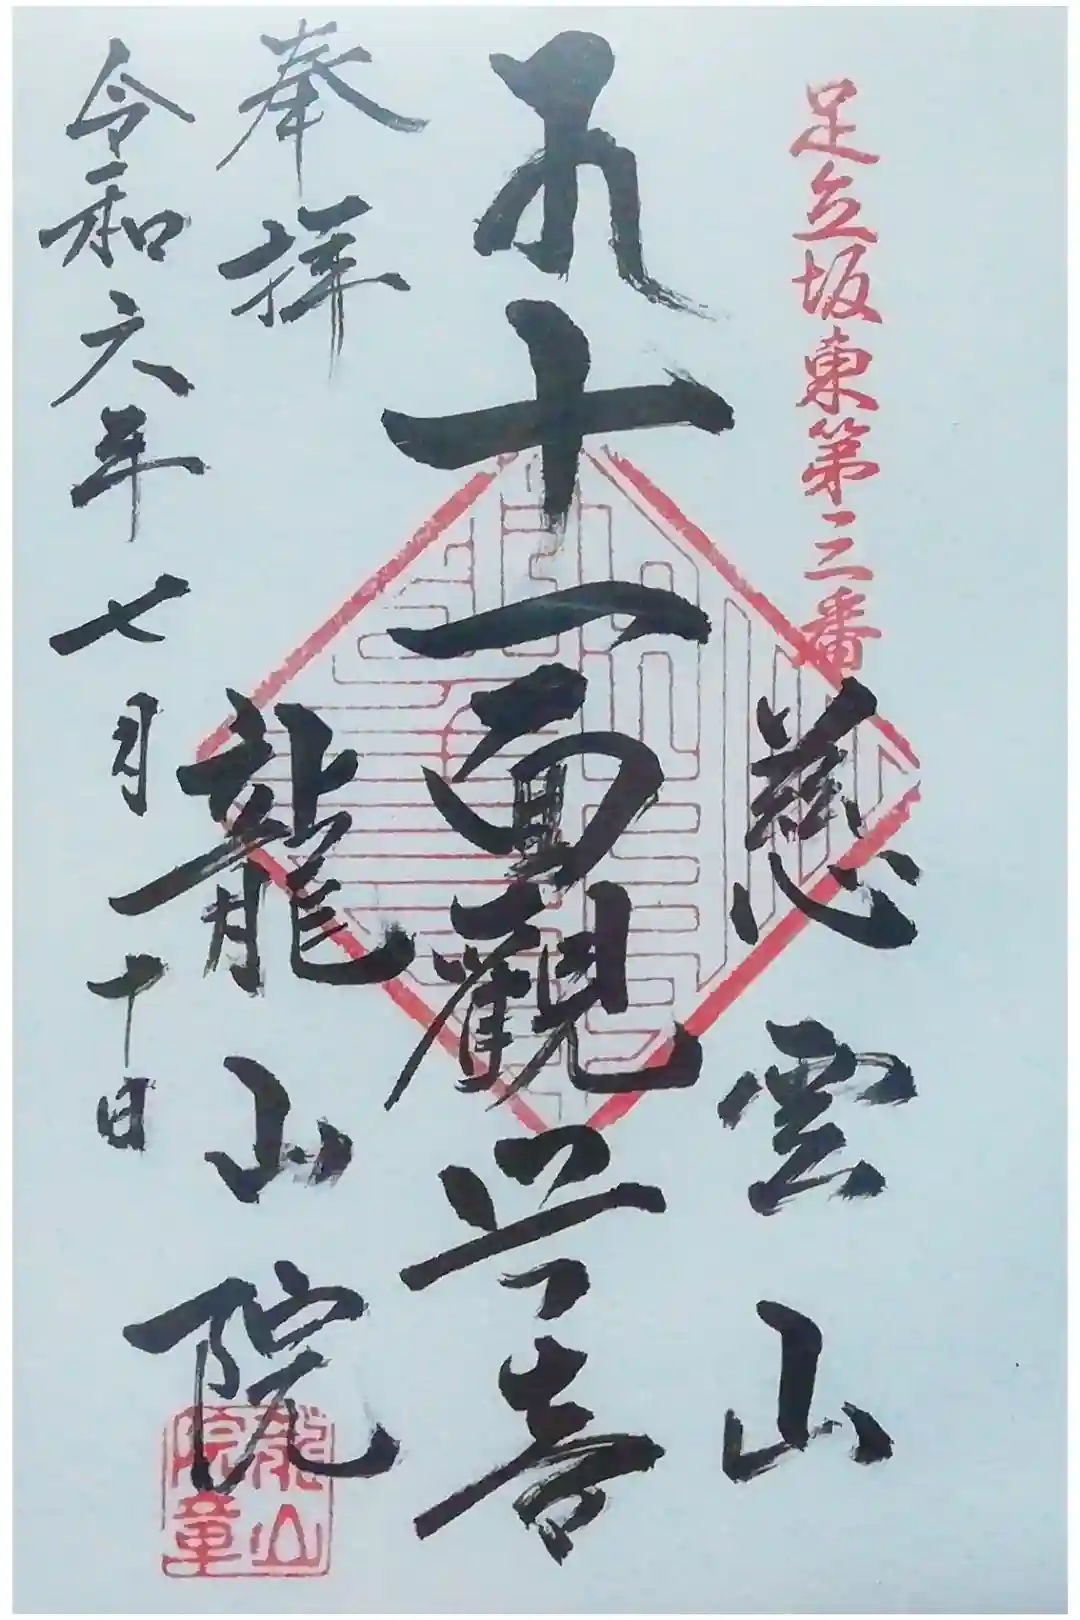 足立坂東第三番
慈雲山
十一面觀世音
奉拝
龍山院
龍山院章
令和六年七月十日